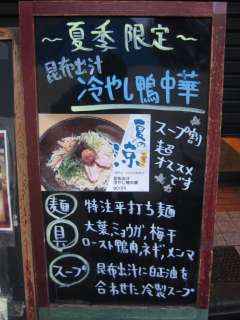 ～夏季限定～
昆布出汁
冷やし鴨中華
夏の涼
昆布出汁
冷やし鴨中華
スープ割
超
オススメ
です
麺 特注平打ち麺
具 大葉、ミョウガ、梅干
ロースト鴨肉、ネギ、メンマ
スープ 昆布出汁に白正油を
合わせた冷製スープ